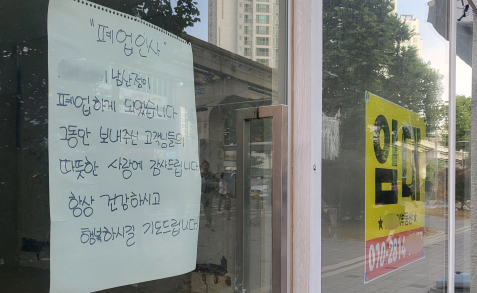 "폐업인사"
폐업하게 되었습니다
그동안 보내주신 고객님들의
따뜻한 사랑에 감사드립니다
항상 건강하시고
행복하시길 기도드립니다
임대
010-2814